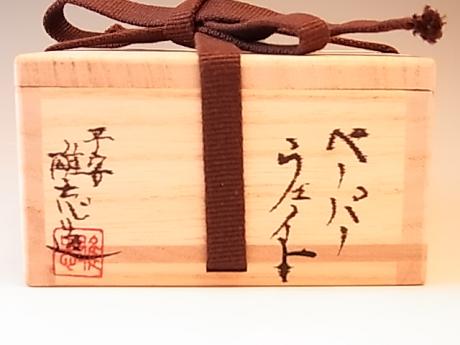 ペーパー
ウェイト
平安
雄志造